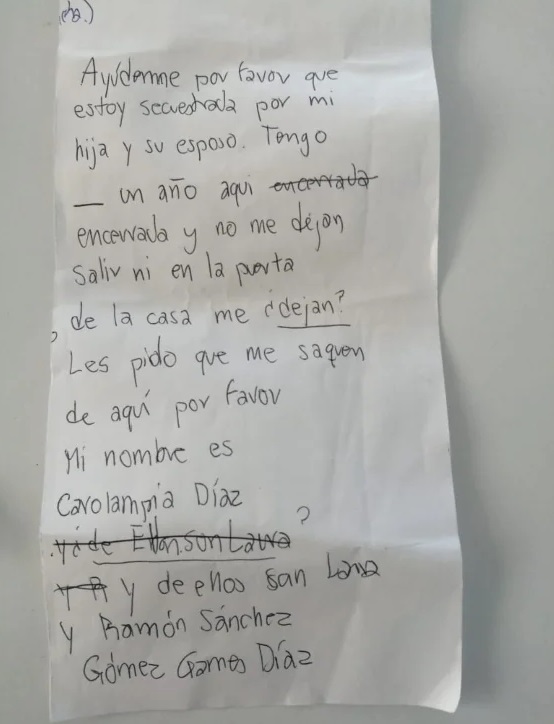 Ayúdenme por favor que
estoy secuestrada por mi
hija y su esposo. Tengo
_ un año aqui encerrada
encerrada y no me dejan
Salir ni en la puerta
de la casa me ¿dejan?
Les pido que me saquen
de aquí por favor
Mi nombre es
Carolampia Díaz
?
y de ellos san Lara
y Ramón Sánchez
Gómez Gomes Díaz